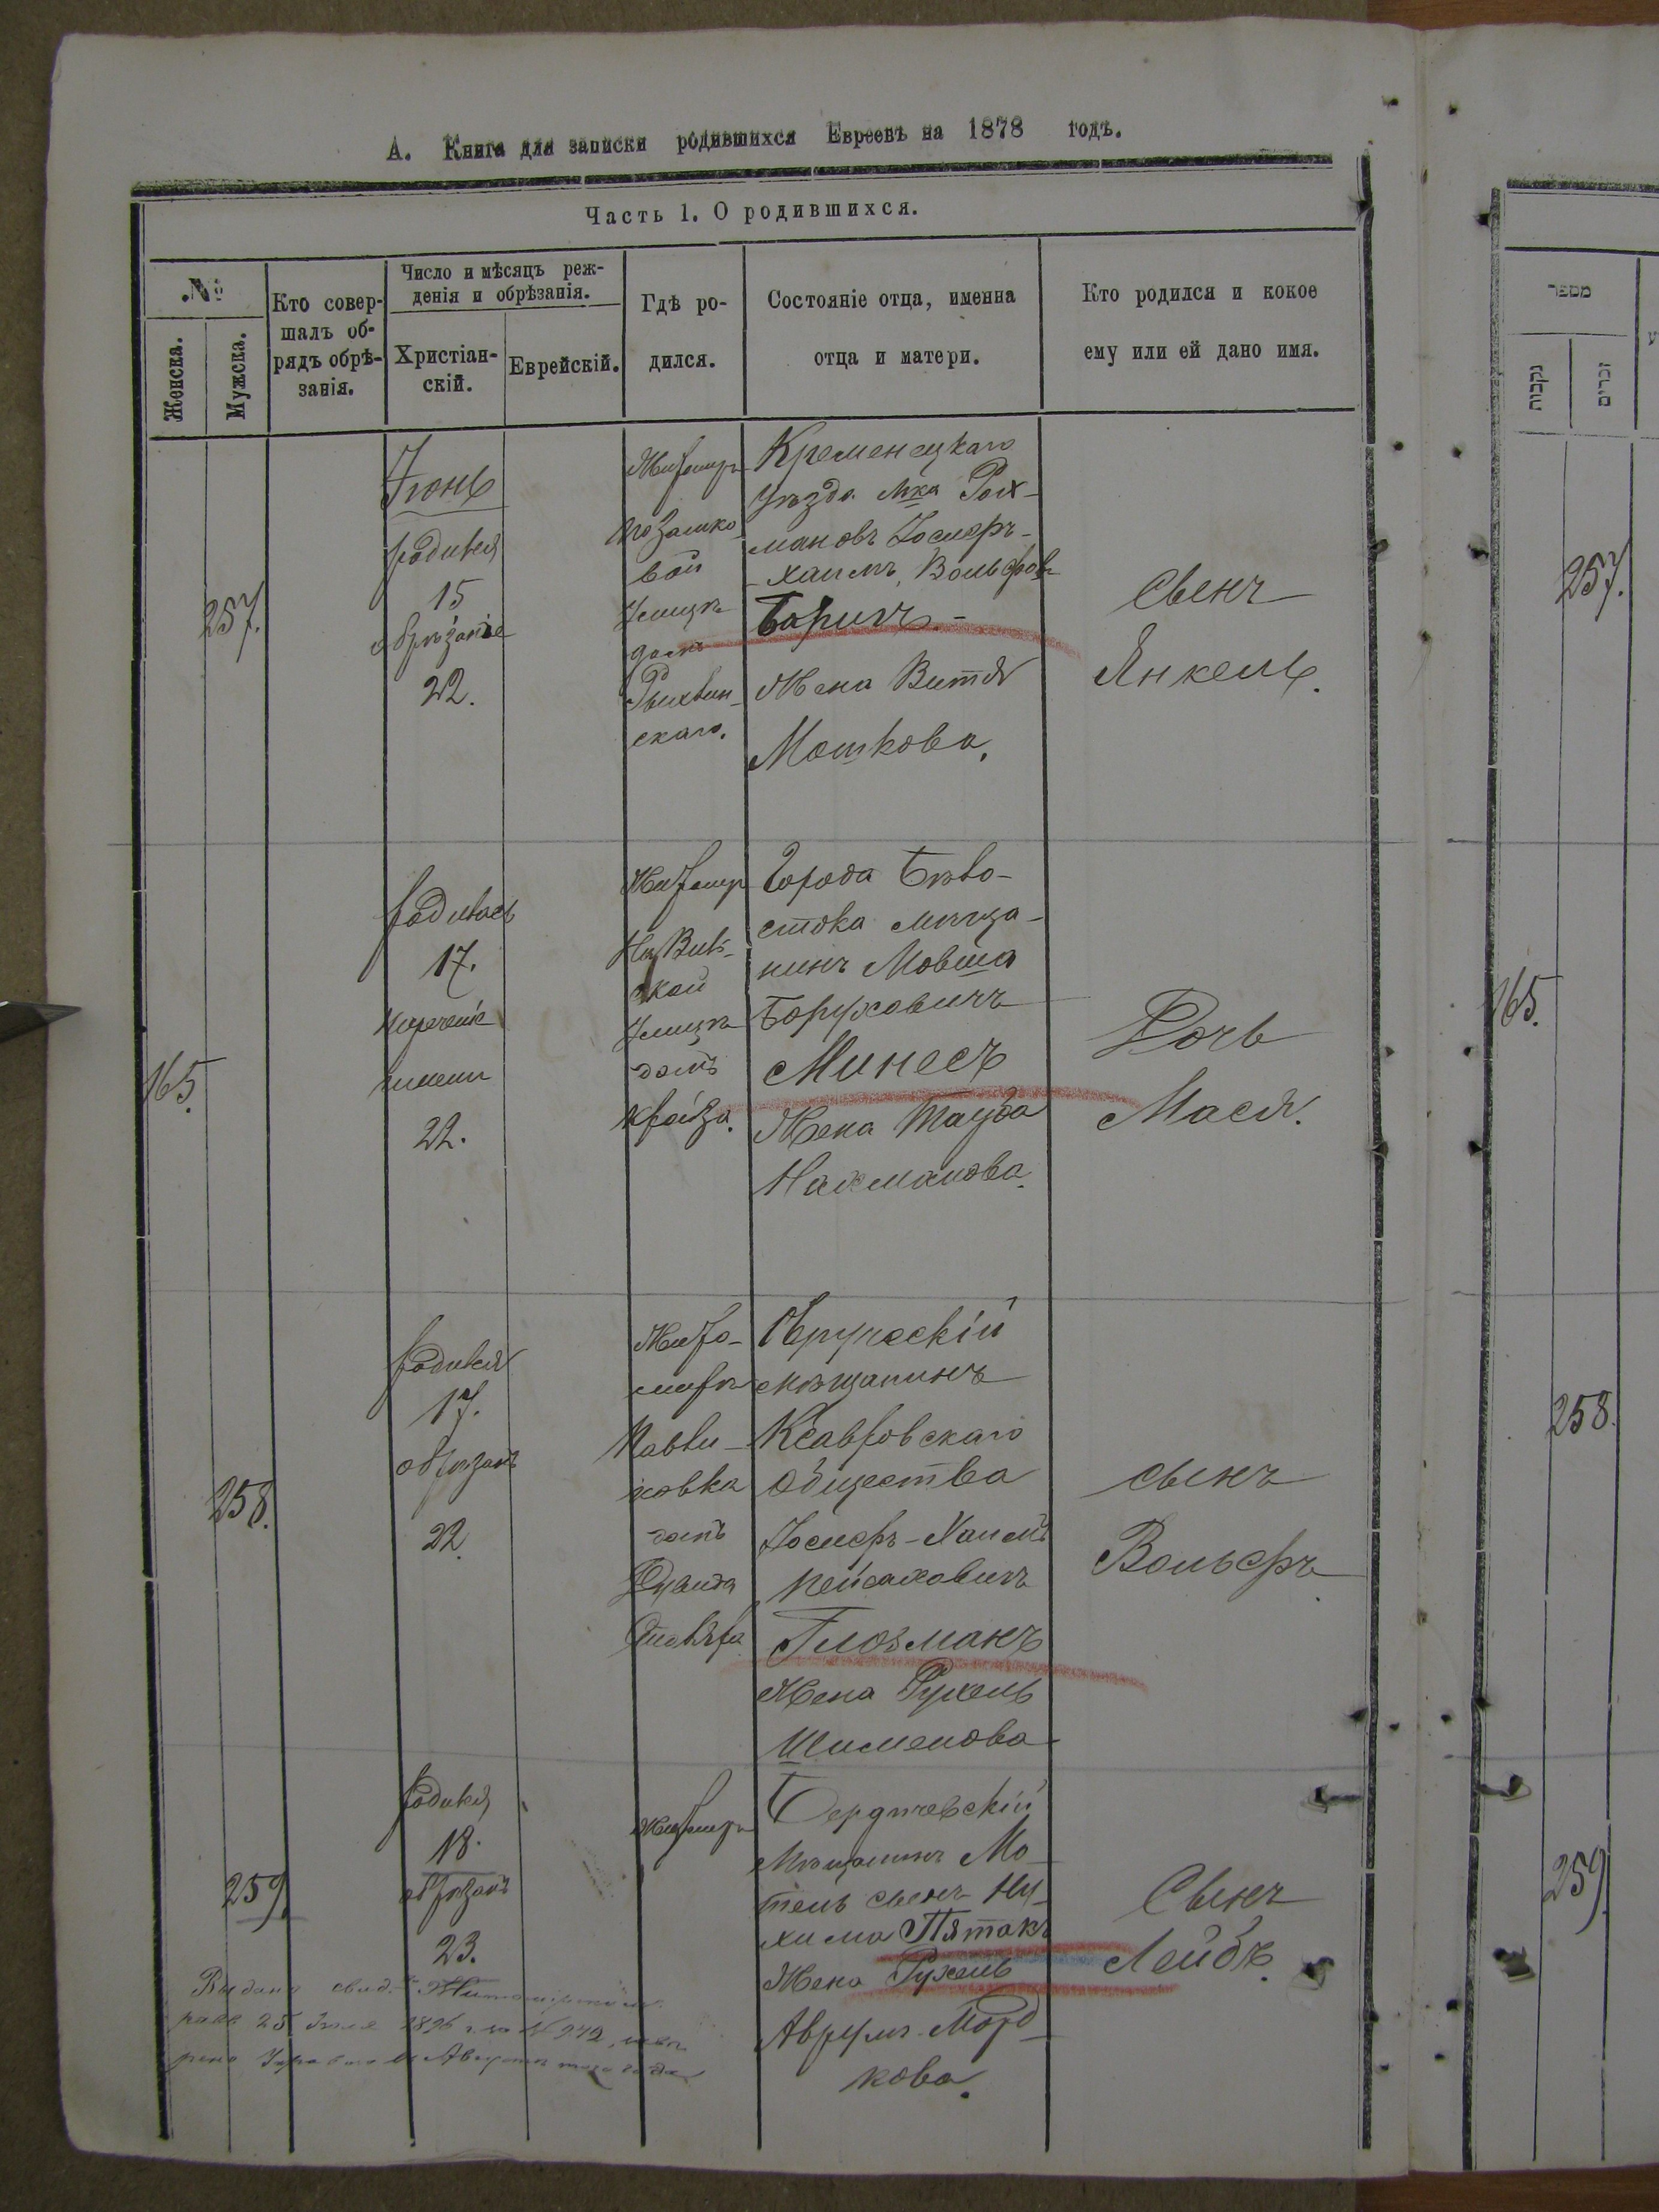 А. Книга для записки родившихся Евреевъ на 1878 годъ.
Часть 1. О родившихся.
№
Женска.
Мужска.
Кто совер-
шалъ об-
рядъ обрѣ-
занія.
Число и мѣсяцъ реж-
денія и обрѣзанія.
Христіан-
скій.
Еврейскій.
Гдѣ ро-
дился.
Состояніе отца, именна
отца и матери.
Кто родился и кокое
ему или ей дано имя.
מספר
נקבות
זכרים
257.
Іюнь
родился
15
обрѣзаніе
22.
Житомиръ
улицѣ
домъ
скаго.
Кременецкаго
уѣзда м-ка Рах-
мановъ Іосифъ-
Хаимъ Вольфов
Барихъ.-
Жена Витя
Мошкова.
Сынъ
Янкель.
257.
165.
родилась
17.
22.
Житомир
улицѣ
домъ
Города Бѣло-
стока мѣща-
нинъ Мовша
Боруховичъ
Минесъ
Жена Тауба
Нахманова.
Дочь
Мася.
165.
258.
родился
17.
обрѣзанъ
22.
Жито-
миръ
Павли-
ковка
домъ
Овручскій
мѣщанинъ
Ксавровскаго
общества
Іосифъ-Хаимъ
Пейсаховичъ
Глозманъ
Жена Рухель
Шименова
сынъ
Вольфъ.
258.
259.
родился
18.
обрѣзанъ
23.
Житомиръ
Бердичевскій
мѣщанинъ Мо-
тель сынъ Ну-
хима Пятакъ
Жена Рухель
Аврумъ-Морд-
кова.
Сынъ
Лейбъ.
259.
Выдано свид. Житомирскимъ
рав. 25 Іюля 1896 г. за № 972,
Августа того года